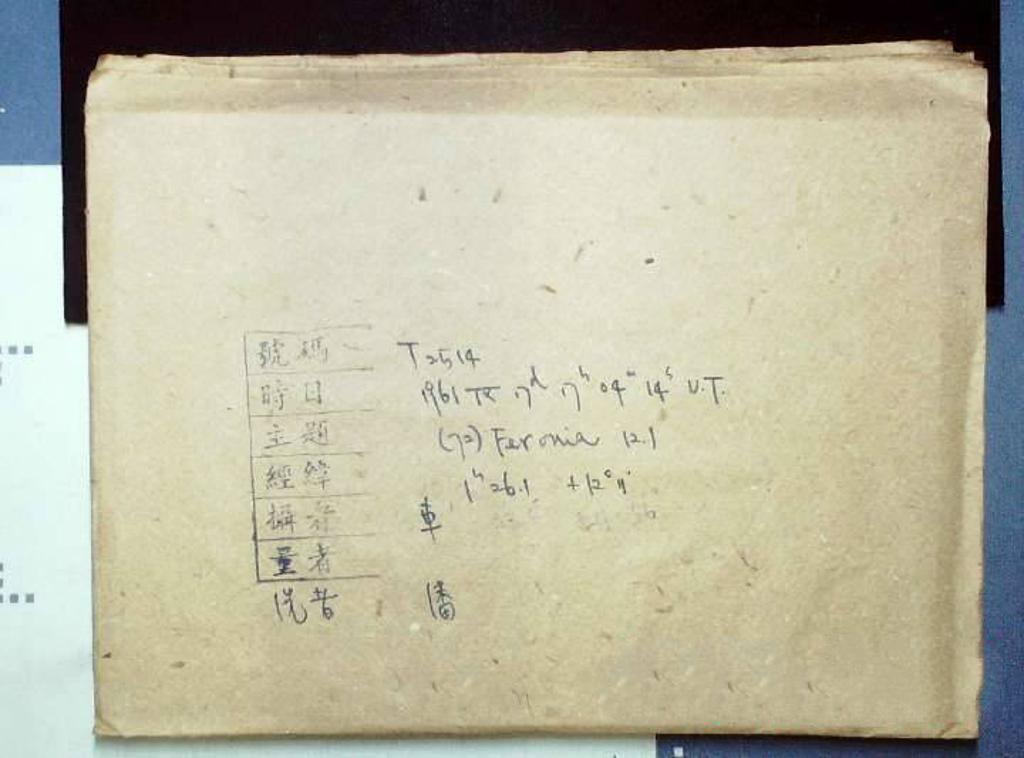 號碼 T2514
時日 1961 IX 7d 17h 04m 14s U.T.
主題 (72) Feronia 12.1
經緯 1h26.1 +12°11'
攝者 車
量者
洗者 潘